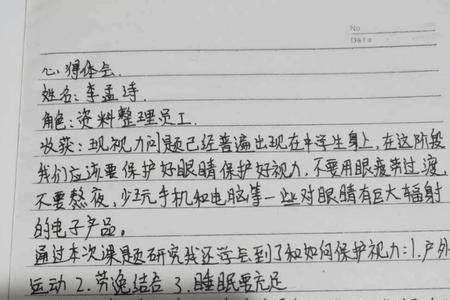 No
Date
心得体会.
姓名：李孟诗.
角色：资料整理员工.
收获：现视力问题已经普遍出现在中学生身上，在这阶段
我们应该要保护好眼睛保护好视力，不要用眼疲劳过渡，
不要熬夜，少玩手机和电脑等一些对眼睛有巨大辐射
的电子产品。
通过本次课题研究我还学会到了和如何保护视力：1.户外
运动 2.劳逸结合 3.睡眠要充足